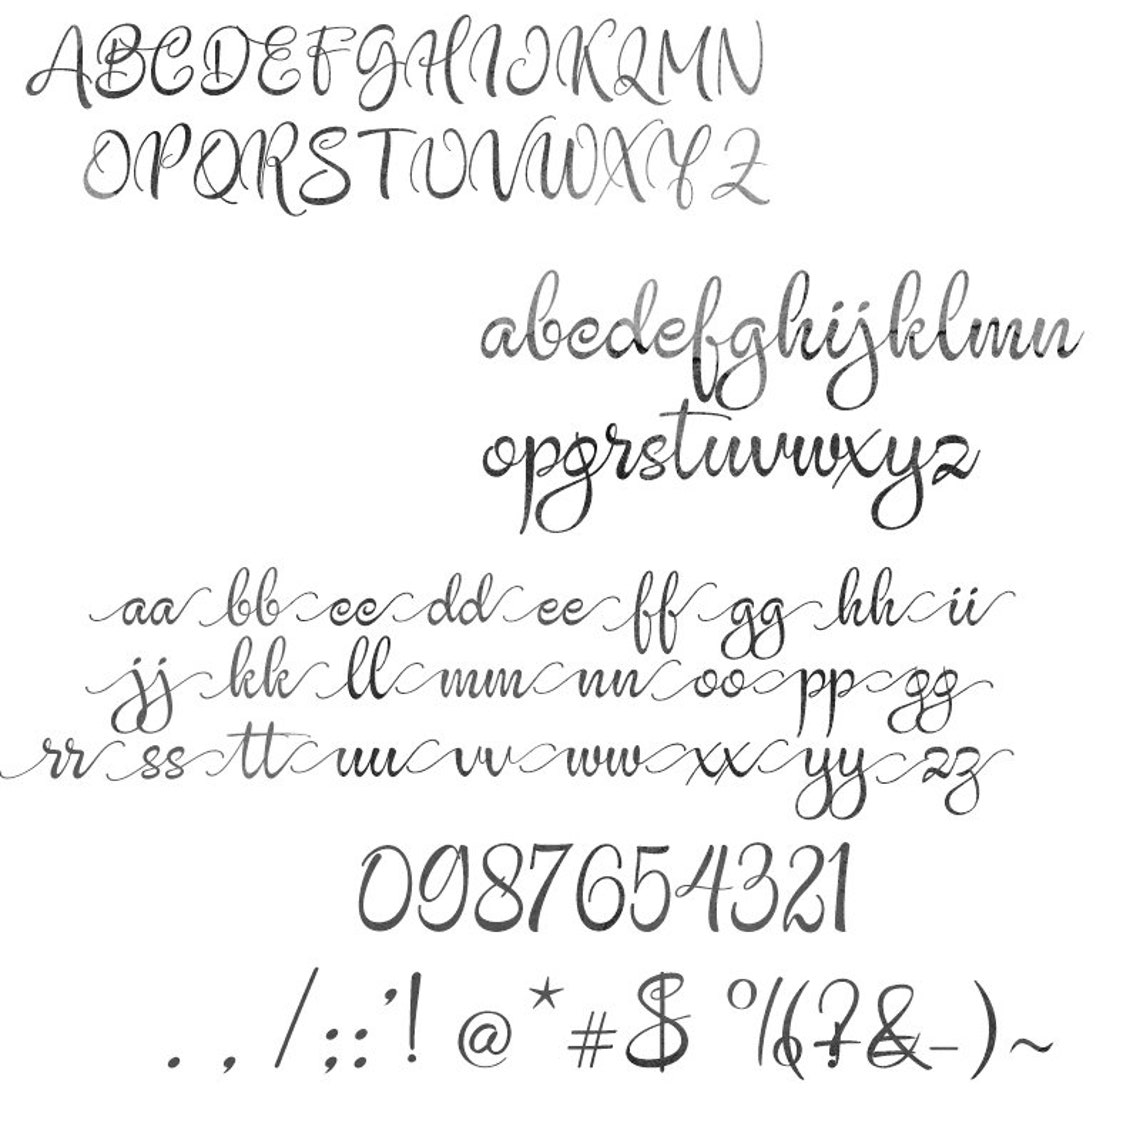 ABCDEFGHIJKLMN
OPQRSTUVWXYZ
abcdefghijklmn
opqrstuvwxyz
aa bb cc dd ee ff gg hh ii
jj kk ll mm nn oo pp qq
rr ss tt uu vv ww xx yy zz
0987654321
. , / ; : ' ! @ * # $ % ( ? + & = - ) ~